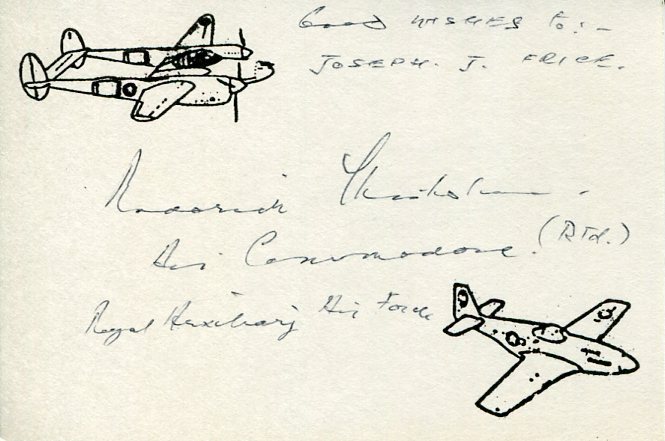 Good WISHES to:-
JOSEPH. J. FRICK.
Roderick Chisholm.
Air Commodore. (Rtd.)
Royal Auxiliary Air Force